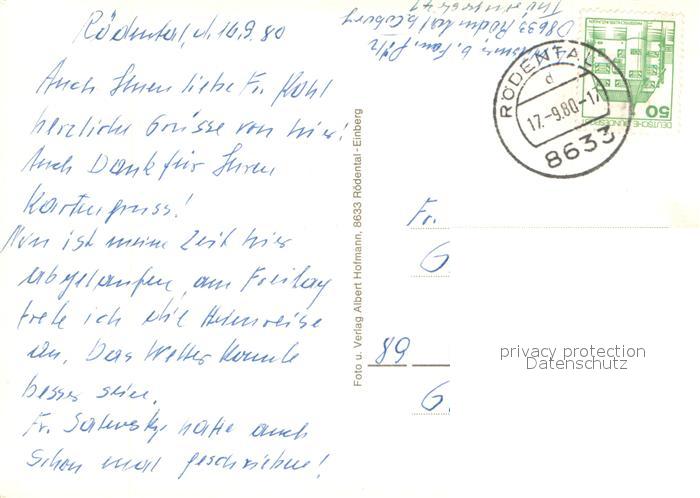 Rödental, d. 16.9.80
Auch Ihnen liebe Fr. Kohl
herzliche Grüsse von hier!
Auch Dank für Ihren
Kartengruss!
Nun ist meine Zeit hier
abgelaufen, am Freitag
trete ich die Heimreise
an. Das Wetter könnte
besser sein.
Fr. hatte auch
schon mal geschrieben!
D 8633 Rödental b. Coburg
Foto u. Verlag Albert Hofmann, 8633 Rödental-Einberg
RÖDENTAL
d
17.-9.80-17
8633
50
DEUTSCHE BUNDESPOST
Fr.
G
89
G.
privacy protection
Datenschutz